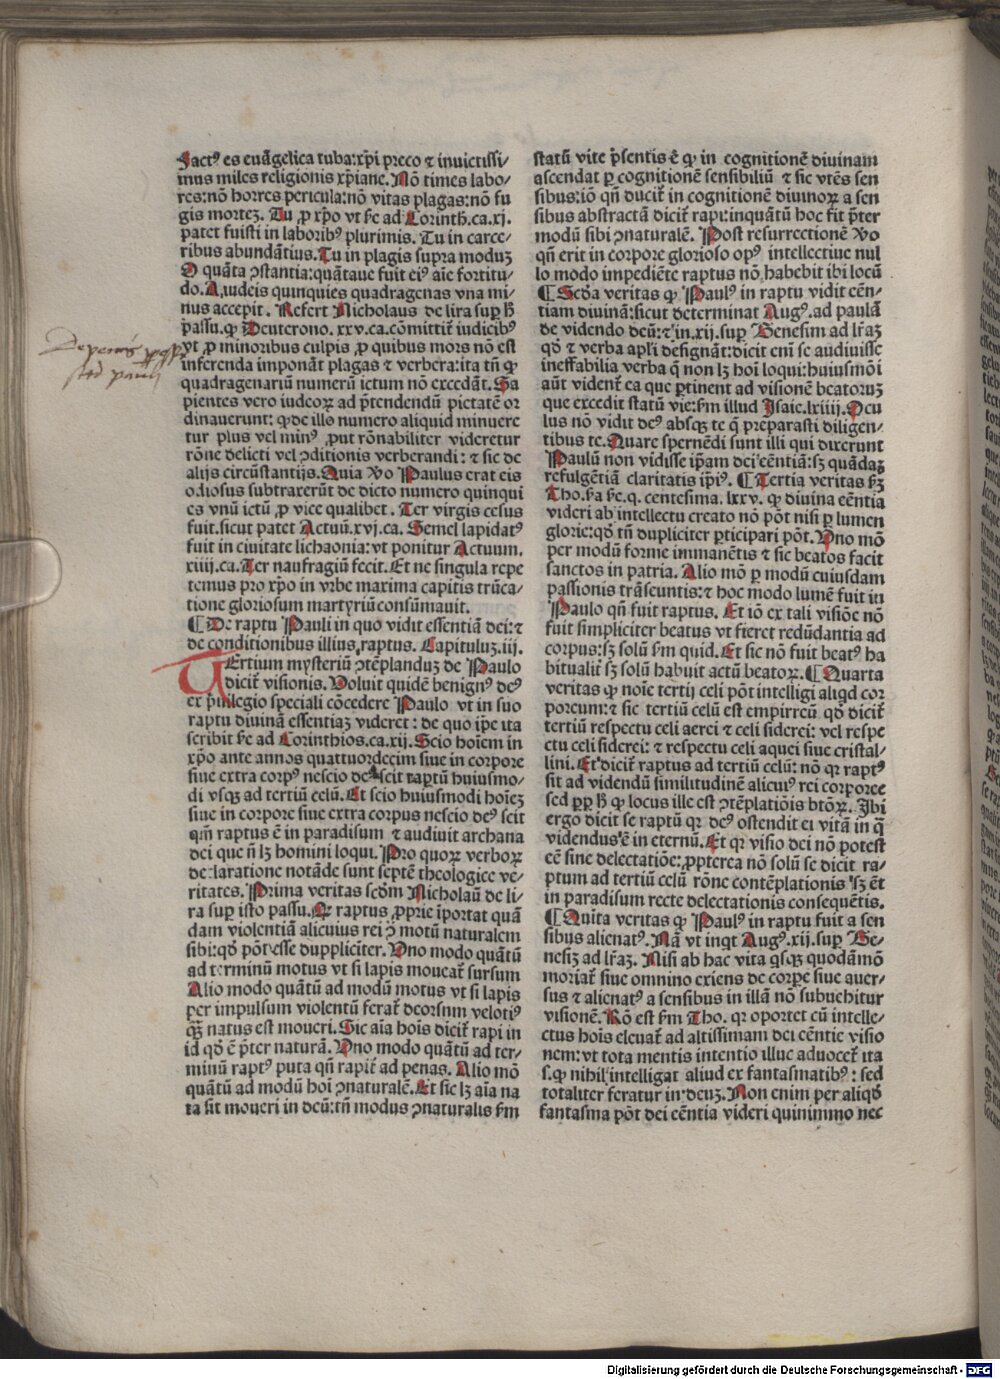 Factꝰ es euāgelica tuba:xp̄i preco ⁊ inuictissi/
mus miles religionis xp̄iane. Nō times labo/
res:nō horres pericula:nō vitas plagas:nō fu
gis mortez. Tu ꝓ xp̄o vt ſc ad Corinth.ca.xj.
patet fuisti in laboribꝰ plurimis. Tu in carce/
ribus abundātius. Tu in plagis supra moduʒ
O quāta ꝯstantia:quātaue fuit eiꝰ aīe fortitu/
do. A iudeis quinquies quadragenas vna mi/
nus accepit. Refert Nicholaus de lira sup̄ h̄
passu. ꝙ Deuterono. xxv.ca.cōmittit̄ iudicibꝰ
vt ꝓ minoribus culpis ꝓ quibus mors nō est
inferenda imponāt plagas ⁊ verbera:ita tn̄ ꝙ
quadragenariū numerū ictum nō excedāt. Sa
pientes vero iudeoꝝ ad p̄tendendū pietatē or
dinauerunt: ꝙ de illo numero aliquid minuere
tur plus vel minꝰ ꝓut rōnabiliter videretur
rōne delicti vel ꝯditionis verberandi: ⁊ sic de
alijs circūstantijs. Quia v̊o Paulus erat eis
odiosus subtraxerūt de dicto numero quinqui
es vnū ictū ꝓ vice qualibet. Ter virgis cesus
fuit.sicut patet Actuū.xvj.ca. Semel lapidatꝰ
fuit in ciuitate lichaonia:vt ponitur Actuum.
xiiij.ca. Ter naufragiū fecit. Et ne singula repe
temus pro xp̄o in vrbe maxima capitis trūca/
tione gloriosum martyriū consūmauit.
¶ De raptu Pauli in quo vidit essentiā dei:⁊
de conditionibus illius raptus. Capituluʒ.iij.
TErtium mysteriū ꝯtēplanduʒ de Paulo
dicit̄ visionis. Voluit quidē benignꝰ deꝰ
ex p̄uilegio speciali cōcedere Paulo vt in suo
raptu diuinā essentiaʒ videret: de quo ip̄e ita
scribit ſc ad Corinthios.ca.xij. Scio hoīem in
xp̄o ante annos quattuordecim siue in corpore
siue extra corpꝰ nescio deꝰ scit raptū huiusmo/
di vsqꝫ ad tertiū celū. Et scio huiusmodi hoīeʒ
siue in corpore siue extra corpus nescio deꝰ scit
qm̄ raptus ē in paradisum ⁊ audiuit archana
dei que n̄ lꝫ homini loqui. Pro quoꝝ verboꝝ
declaratione notāde sunt septē theologice ve/
ritates. Prima veritas scd̄m Nicholaū de li/
ra sup̄ isto passu. Qꝛ raptus ꝓprie īportat quā
dam violentiā alicuius rei ꝯ motū naturalem
sibi:qd̄ pōt esse duppliciter. Vno modo quātū
ad terminū motus vt si lapis moueat̄ sursum
Alio modo quātū ad modū motus vt si lapis
per impulsum violentū ferat̄ deorsum velotiꝰ
qꝫ natus est moueri. Sic aīa hoīs dicit̄ rapi in
id qd̄ ē p̄ter naturā. Vno modo quātū ad ter/
minū raptꝰ puta qn̄ rapit̄ ad penas. Alio mō
quātū ad modū hoī ꝯnaturalē. Et sic lꝫ aīa na
ta sit moueri in deū:tn̄ modus ꝯnaturalis ſm
De penis ꝓp
stes pauli
statū vite p̄sentis ē ꝙ in cognitionē diuinam
ascendat ꝑ cognitionem sensibiliū ⁊ sic vtēs sen
sibus:iō qn̄ ducit̄ in cognitionē diuinoꝝ a sen
sibus abstractā dicit̄ rapi:inquātū hoc fit p̄ter
modū sibi ꝯnaturalē. Post resurrectionē v̊o
qn̄ erit in corpore glorioso opꝰ intellectiue nul
lo modo impediēte raptus nō habebit ibi locū
¶ Scd̄a veritas ꝙ Paulꝰ in raptu vidit eēn/
tiam diuinā:sicut determinat Augꝰ.ad paulā
de videndo deū:⁊ in.xij.sup̄ Genesim ad lr̄aʒ
qd̄ ⁊ verba apl̄i designāt:dicit eni se audiuisse
ineffabilia verba q̄ non lꝫ hoī loqui:huiusmōi
aūt vident̄ ea que ꝑtinent ad visionē beatoruʒ
que excedit statū vie:ſm illud Isaie.lxiiij. Ocu
lus nō vidit deꝰ absqꝫ te q̄ preparasti diligen/
tibus te. Quare spernēdi sunt illi qui dixerunt
Paulū non vidisse ip̄am dei eēntiā:sꝫ quādaʒ
refulgētiam claritatis ip̄iꝰ. ¶ Tertia veritas ſʒ
Tho.ſa ſe.q. centesima.lxxv. ꝙ diuina eēntia
videri ab intellectu creato nō pōt nisi ꝑ lumen
glorie:qd̄ tn̄ dupliciter ꝑticipari pōt. Vno mō
per modū forme immanētis ⁊ sic beatos facit
sanctos in patria. Alio mō ꝑ modū cuiusdam
passionis trāseuntis:⁊ hoc modo lumē fuit in
Paulo qn̄ fuit raptus. Et iō ex tali visiōe nō
fuit simpliciter beatus vt fieret redūdantia ad
corpus:sꝫ solū ſm quid. Et sic nō fuit beatꝰ ha
bitualit̄ sꝫ solū habuit actū beatoꝝ. ¶ Quarta
veritas ꝙ noīe tertij celi pōt intelligi aliqd cor
poreum:⁊ sic tertiū celū est empirreū qd̄ dicit̄
tertiū respectu celi aerei ⁊ celi siderei: vel respe
ctu celi siderei: ⁊ respectu celi aquei siue cristal/
lini. Et dicit̄ raptus ad tertiū celū: nō qꝛ raptꝰ
sit ad videndū similitudinē alicuiꝰ rei corporee
sed ꝓp̄ h̄ ꝙ locus ille est ꝯtēplatiōis btōꝝ. Ibi
ergo dicit se raptū qꝛ deꝰ ostendit ei vitā in q̄
videndus ē in eternū. Et qꝛ visio dei nō potest
eē sine delectatiōe:ꝓpterea nō solū se dicit ra/
ptum ad tertiū celū rōne contēplationis sꝫ ēt
in paradisum recte delectationis consequētis.
¶ Quīta veritas ꝙ Paulꝰ in raptu fuit a sen
sibus alienatꝰ. Nā vt inqt Augꝰ.xij.sup̄ Ge/
nesiʒ ad lr̄aʒ. Nisi ab hac vita qsqꝫ quodāmō
moriat̄ siue omnino exiens de corpe siue auer/
sus ⁊ alienatꝰ a sensibus in illā nō subuehitur
visionē. Rō est ſm Tho. qꝛ oportet cū intelle/
ctus hoīs eleuat̄ ad altissimam dei eēntie visio
nem:vt tota mentis intentio illuc aduocet̄ ita
s.ꝙ nihil intelligat aliud ex fantasmatibꝰ: sed
totaliter feratur in deuʒ. Non enim per aliqd̄
fantasma pōt dei eēntia videri quinimmo nec
Digitalisierung gefördert durch die Deutsche Forschungsgemeinschaft - DFG